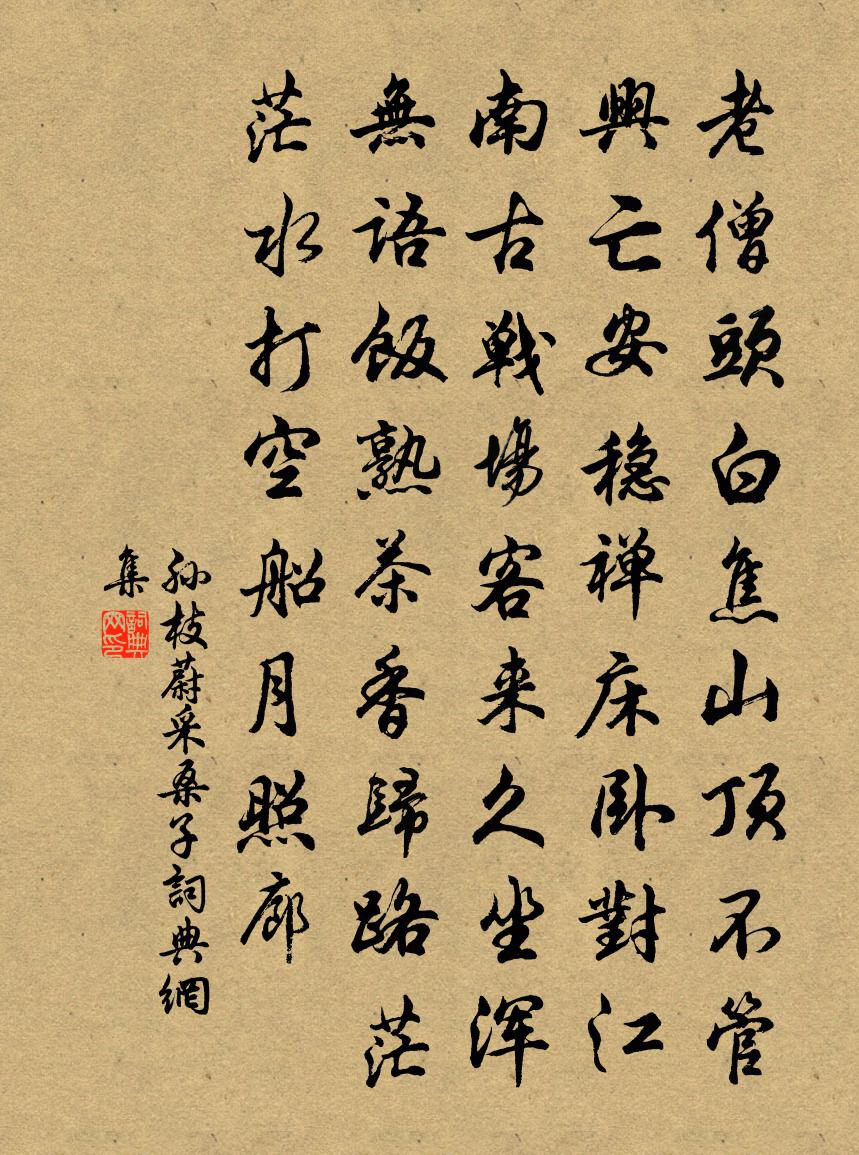 老僧頭白焦山頂不管
興亡安穩禅床卧對江
南古戰場客来久坐浑
無語飯熟茶香歸路茫
茫水打空船月照廊
孙枝蔚采桑子詞典網
集
詞典網印